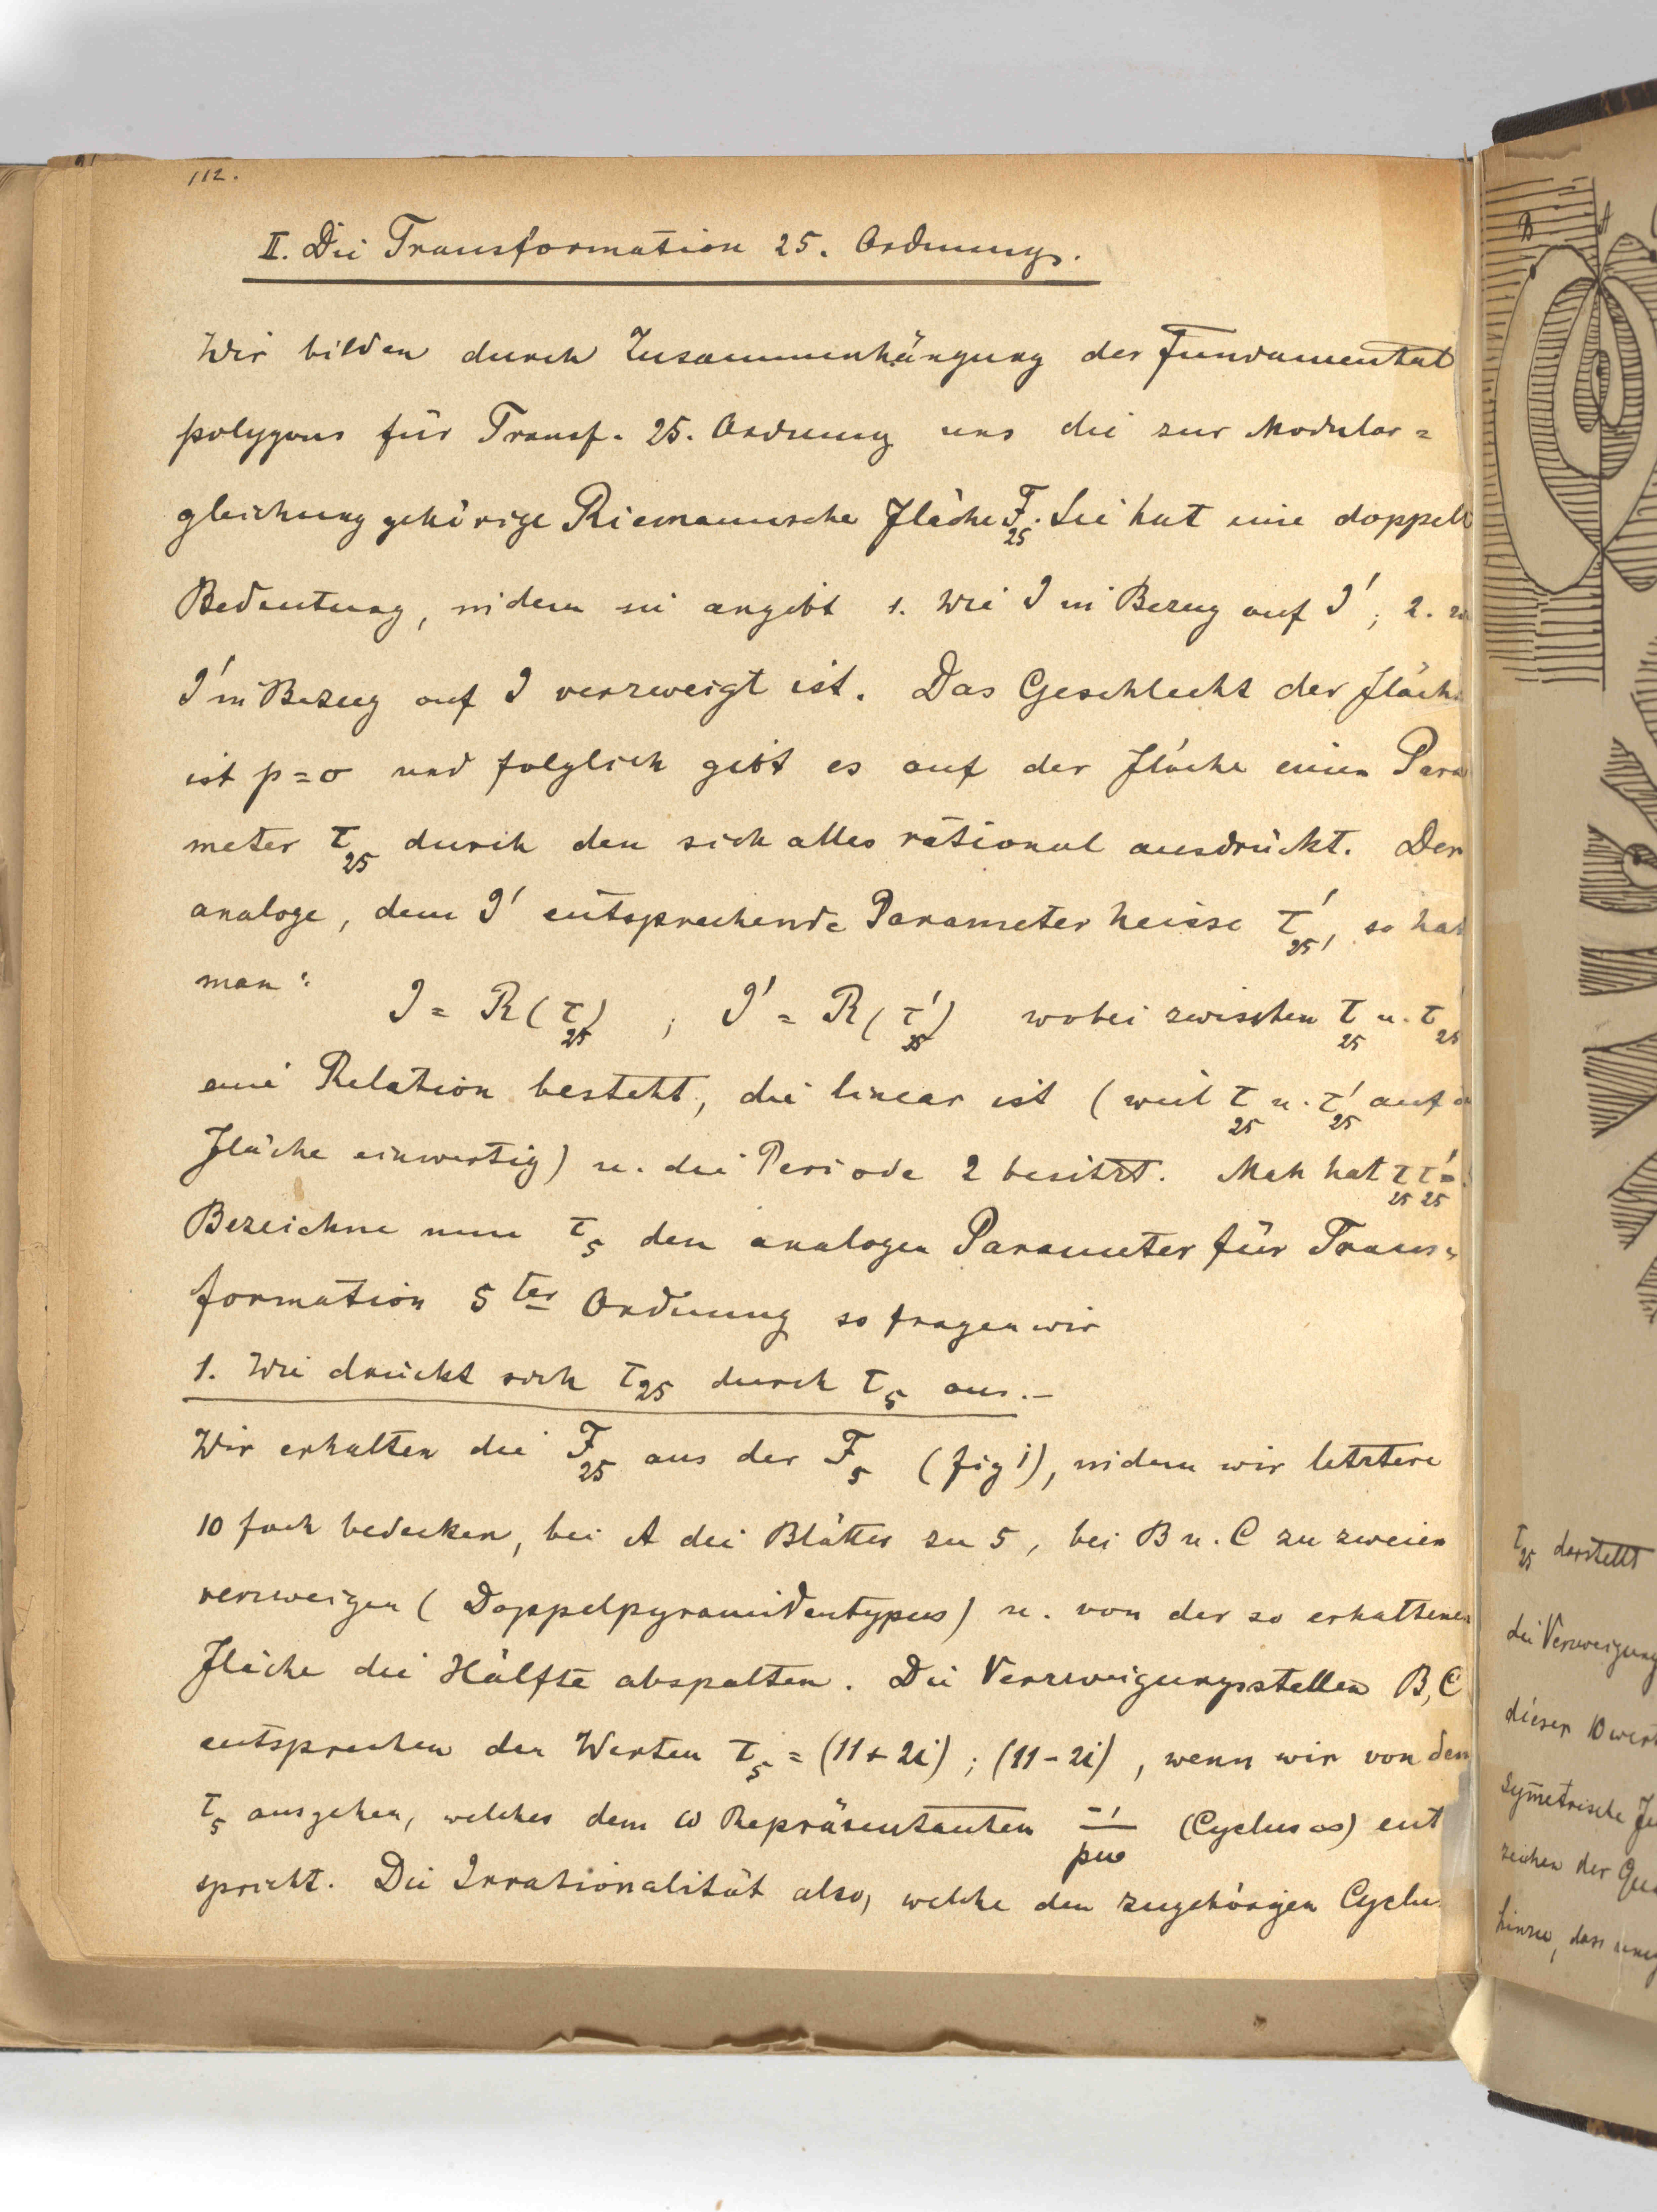 112.
II. Die Transformation 25. Ordnung.
Wir bilden durch Zusammenhängung der Fundamental
polygons für Transf. 25. Ordnung uns die zur Modular=
gleichung gehörige Riemannsche Fläche F₂₅. Sie hat eine doppelt
Bedeutung, indem sie angibt 1. Wie J in Bezug auf J'; 2.
J' in Bezug auf J verzweigt ist. Das Geschlecht der Fläche
ist p=0 und folglich gibt es auf der Fläche einen Para
meter τ₂₅ durch den sich alles rational ausdrückt. Der
analoge, dem J' entsprechende Parameter heisse τ'₂₅, so hat
man:
J = R(τ₂₅) ; J' = R(τ'₂₅) wobei zwischen τ₂₅ u. τ'₂₅
eine Relation besteht, die linear ist (weil τ₂₅ u. τ'₂₅ auf
Fläche einwertig) u. die Periode 2 besitzt. Man hat τ₂₅ τ'₂₅ =
Bezeichne nun τ₅ den analogen Parameter für Trans=
formation 5ter Ordnung so fragen wir
1. Wie drückt sich τ₂₅ durch τ₅ aus.–
Wir erhalten die F₂₅ aus der F₅ (fig 1), indem wir letztere
10 fach bedecken, bei A die Blätter zu 5, bei B u. C zu zweien
verzweigen (Doppelpyramidentypus) u. von der so erhaltenen
Fläche die Hälfte abspalten. Die Verzweigungsstellen B, C
entsprechen den Werten τ₅ = (11+2i) ; (11-2i), wenn wir von dem
τ₅ ausgehen, welches dem ω Repräsentanten -1/5ω (Cyclus ∞) ent
spricht. Die Irrationalität also, welche den zugehörigen Cyclu
B
A
τ₂₅ darstellt
die Verzweigung
dieser 10 wert
Symetrische
zeichen der
hinzu, dass